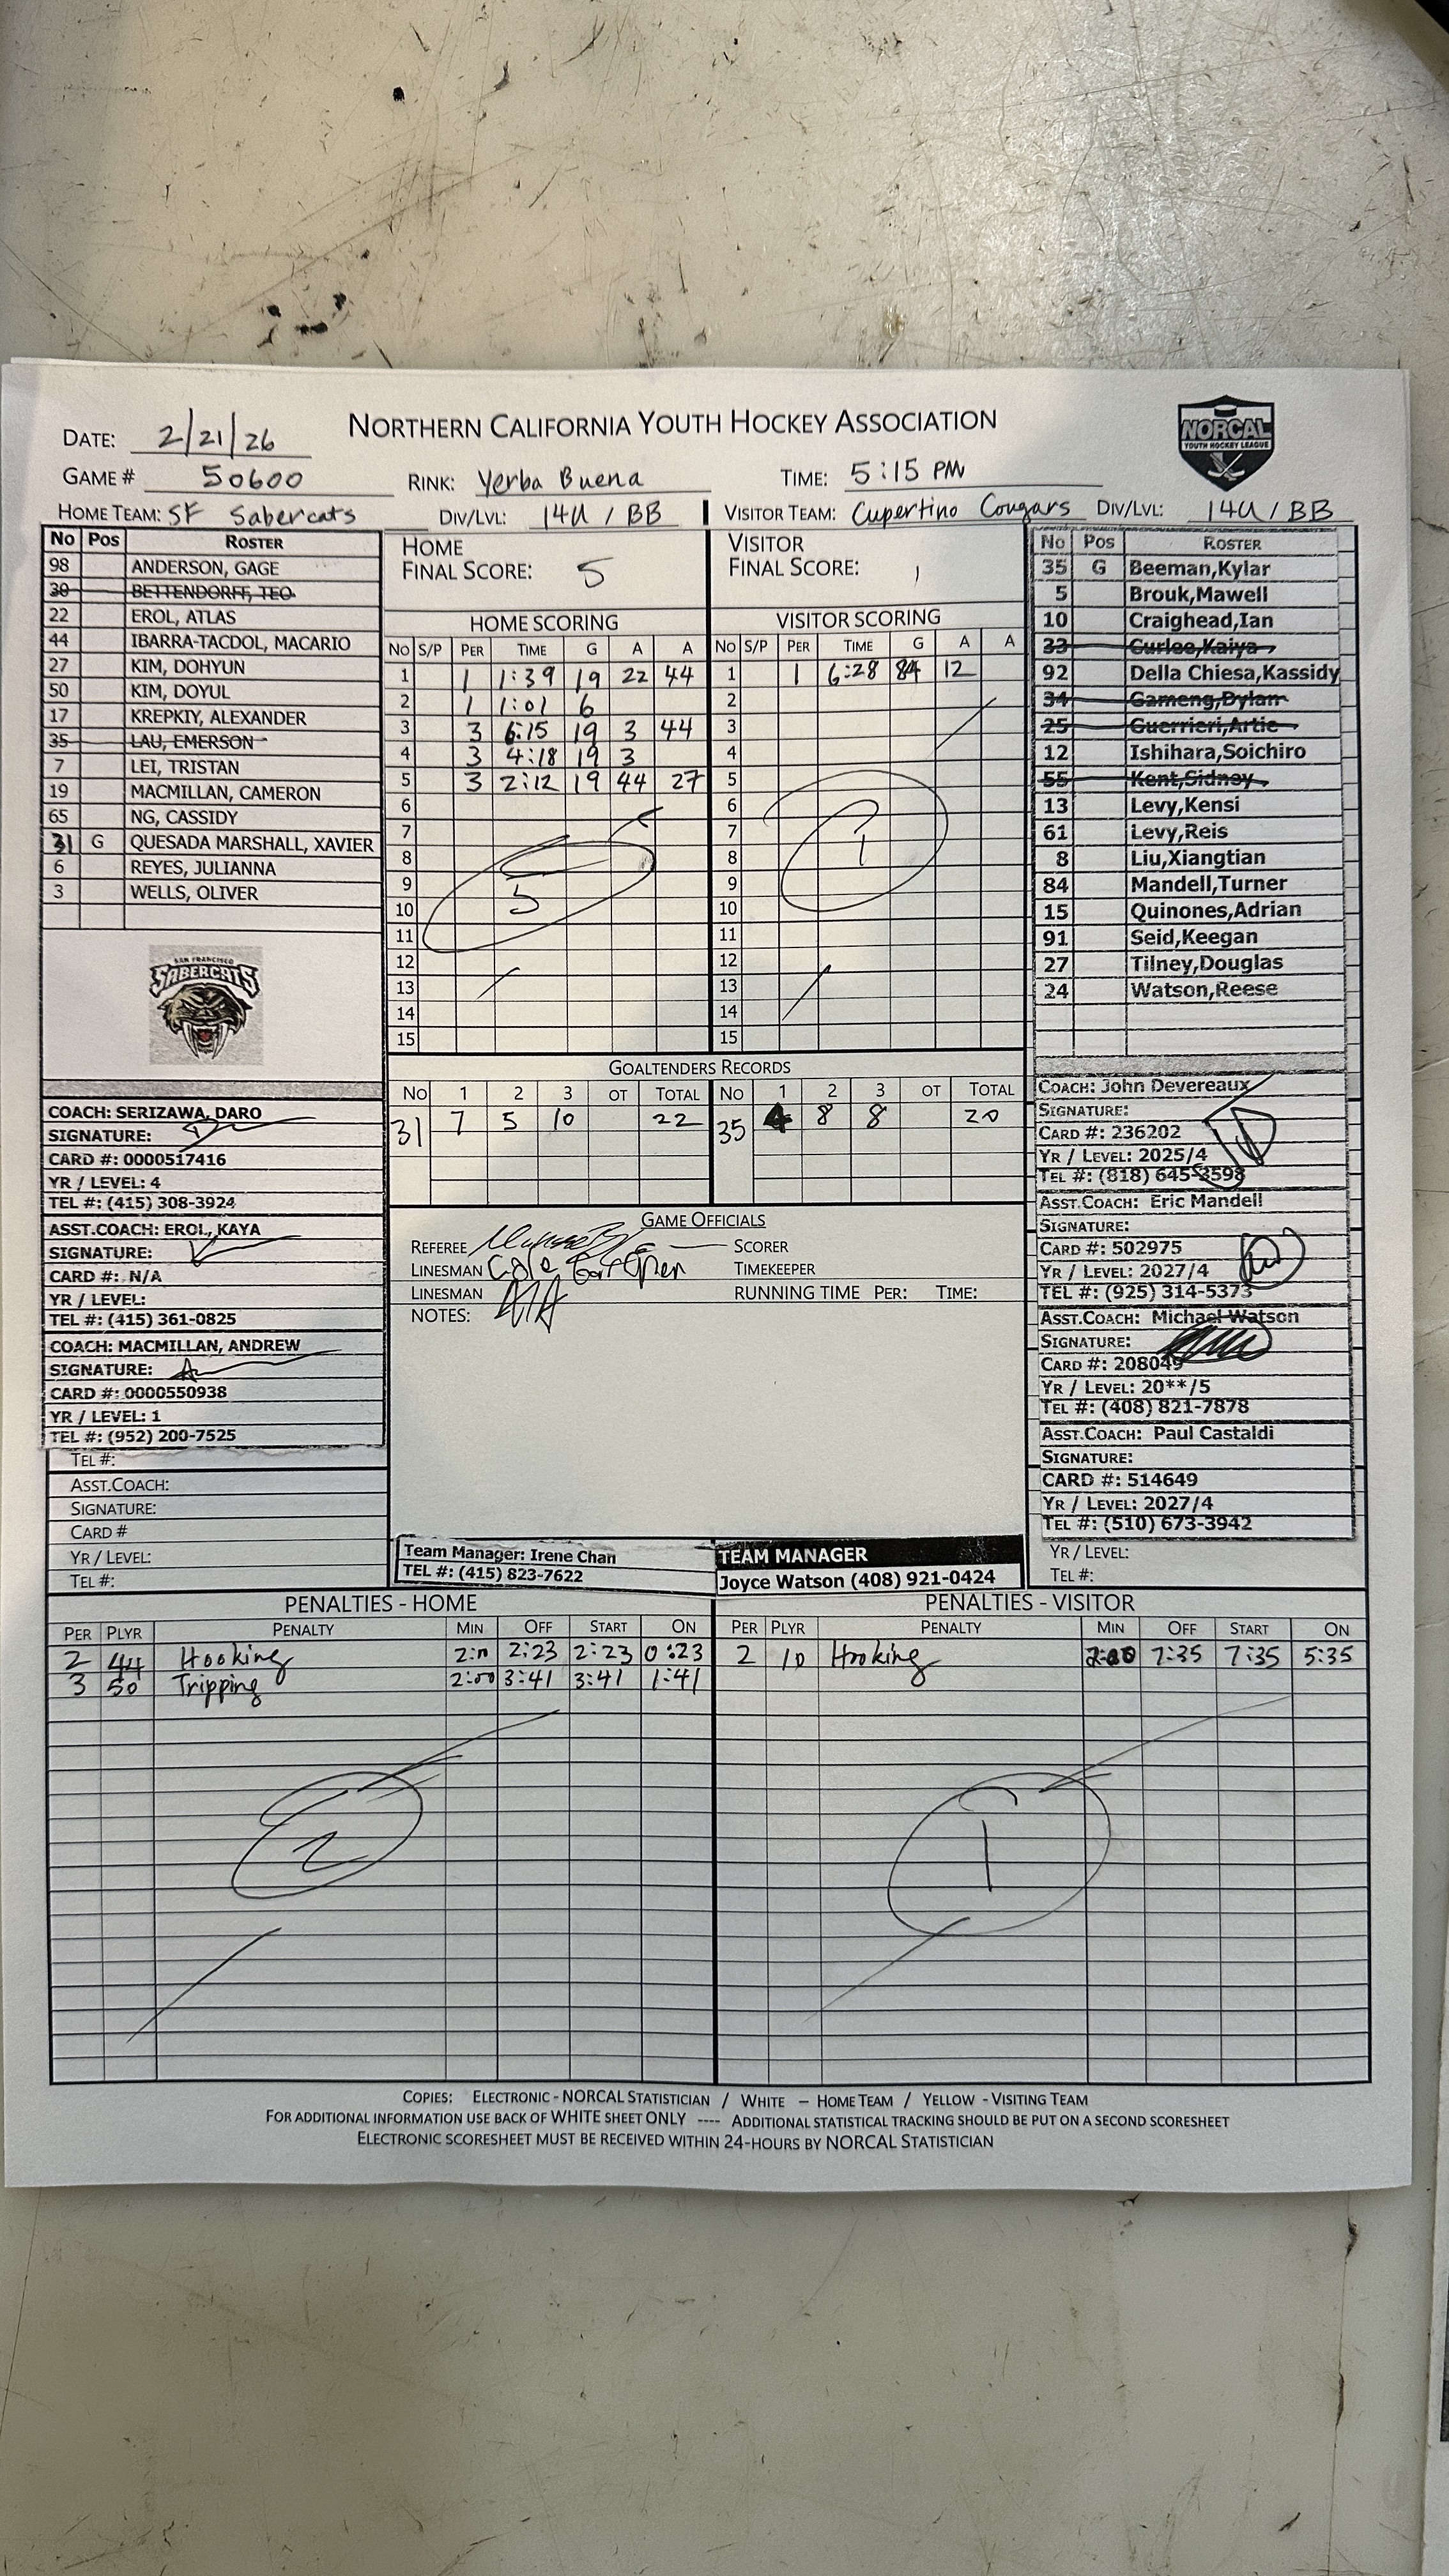 NORTHERN CALIFORNIA YOUTH HOCKEY ASSOCIATION
NORCAL
YOUTH HOCKEY LEAGUE
DATE: 2/21/26
GAME # 50600 RINK: Yerba Buena TIME: 5:15 PM
HOME TEAM: SF Sabercats DIV/LVL: 14U / BB VISITOR TEAM: Cupertino Cougars DIV/LVL: 14U / BB
No Pos ROSTER
98 ANDERSON, GAGE
30 BETTENDORFF, TEO
22 EROL, ATLAS
44 IBARRA-TACDOL, MACARIO
27 KIM, DOHYUN
50 KIM, DOYUL
17 KREPKIY, ALEXANDER
35 LAU, EMERSON
7 LEI, TRISTAN
19 MACMILLAN, CAMERON
65 NG, CASSIDY
31 G QUESADA MARSHALL, XAVIER
6 REYES, JULIANNA
3 WELLS, OLIVER
SAN FRANCISCO
SABERCATS
COACH: SERIZAWA, DARO
SIGNATURE:
CARD #: 0000517416
YR / LEVEL: 4
TEL #: (415) 308-3924
ASST.COACH: EROL, KAYA
SIGNATURE:
CARD #: N/A
YR / LEVEL:
TEL #: (415) 361-0825
COACH: MACMILLAN, ANDREW
SIGNATURE:
CARD #: 0000550938
YR / LEVEL: 1
TEL #: (952) 200-7525
TEL #:
ASST.COACH:
SIGNATURE:
CARD #
YR / LEVEL:
TEL #:
HOME
FINAL SCORE: 5
HOME SCORING
No S/P PER TIME G A A
1 1 1:39 19 22 44
2 1 1:01 6
3 3 6:15 19 3 44
4 3 4:18 19 3
5 3 2:12 19 44 27
6
7
8
9
10
11
12
13
14
15
5
VISITOR
FINAL SCORE: 1
VISITOR SCORING
No S/P PER TIME G A A
1 1 6:28 84 12
2
3
4
5
6
7
8
9
10
11
12
13
14
15
1
GOALTENDERS RECORDS
No 1 2 3 OT TOTAL No 1 2 3 OT TOTAL
31 7 5 10 22 35 4 8 8 20
GAME OFFICIALS
REFEREE SCORER
LINESMAN Cole TIMEKEEPER
LINESMAN N/A RUNNING TIME PER: TIME:
NOTES:
Team Manager: Irene Chan
TEL #: (415) 823-7622
TEAM MANAGER
Joyce Watson (408) 921-0424
No Pos ROSTER
35 G Beeman,Kylar
5 Brouk,Mawell
10 Craighead,Ian
33 Curlee,Kaiya
92 Della Chiesa,Kassidy
34 Gameng,Dylan
25 Guerrieri,Artie
12 Ishihara,Soichiro
55 Kent,Sidney
13 Levy,Kensi
61 Levy,Reis
8 Liu,Xiangtian
84 Mandell,Turner
15 Quinones,Adrian
91 Seid,Keegan
27 Tilney,Douglas
24 Watson,Reese
COACH: John Devereaux
SIGNATURE:
CARD #: 236202
YR / LEVEL: 2025/4
TEL #: (818) 645-3598
ASST.COACH: Eric Mandell
SIGNATURE:
CARD #: 502975
YR / LEVEL: 2027/4
TEL #: (925) 314-5373
ASST.COACH: Michael Watson
SIGNATURE:
CARD #: 208049
YR / LEVEL: 20**/5
TEL #: (408) 821-7878
ASST.COACH: Paul Castaldi
SIGNATURE:
CARD #: 514649
YR / LEVEL: 2027/4
TEL #: (510) 673-3942
YR / LEVEL:
TEL #:
PENALTIES - HOME
PER PLYR PENALTY MIN OFF START ON
2 44 Hooking 2:00 2:23 2:23 0:23
3 50 Tripping 2:00 3:41 3:41 1:41
2
PENALTIES - VISITOR
PER PLYR PENALTY MIN OFF START ON
2 10 Hooking 2:00 7:35 7:35 5:35
1
COPIES: ELECTRONIC - NORCAL STATISTICIAN / WHITE – HOME TEAM / YELLOW - VISITING TEAM
FOR ADDITIONAL INFORMATION USE BACK OF WHITE SHEET ONLY ---- ADDITIONAL STATISTICAL TRACKING SHOULD BE PUT ON A SECOND SCORESHEET
ELECTRONIC SCORESHEET MUST BE RECEIVED WITHIN 24-HOURS BY NORCAL STATISTICIAN